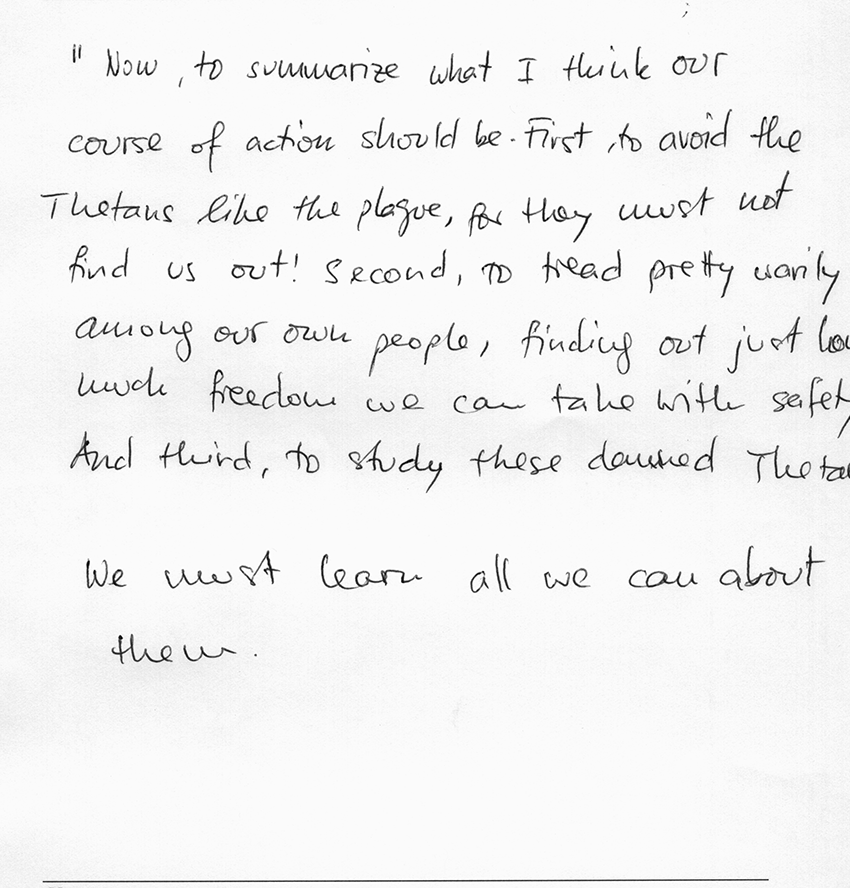 " Now, to summarize what I think our
course of action should be. First, to avoid the
Thetans like the plague, for they must not
find us out! Second, to tread pretty warily
among our own people, finding out just how
much freedom we can take with safety
And third, to study these damned Thetan
We must learn all we can about
them.